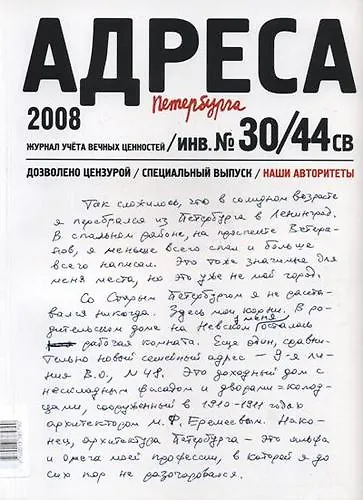 АДРЕСА
Петербурга
2008
ЖУРНАЛ УЧЁТА ВЕЧНЫХ ЦЕННОСТЕЙ / ИНВ. № 30/44 СВ
ДОЗВОЛЕНО ЦЕНЗУРОЙ / СПЕЦИАЛЬНЫЙ ВЫПУСК / НАШИ АВТОРИТЕТЫ
Так сложилось, что в солидном возрасте
я перебрался из Петербурга в Ленинград.
В спальном районе, на проспекте Ветера-
нов, я меньше всего спал и больше
всего написал. Это тоже значимые для
меня места, но это уже не мой город.
Со Старым Петербургом я не расста-
вался никогда. Здесь мои корни. В ро-
дительском доме на Невском у меня осталась
рабочая комната. Еще один, сравни-
тельно новый семейный адрес – 9-я ли-
ния В.О., № 48. Это доходный дом с
несполадным фасадом и дворами-колод-
цами, сооруженный в 1910-1911 годах
архитектором М.Ф. Еремеевым. Нако-
нец, архитектура Петербурга – это альфа
и омега моей профессии, в которой я до
сих пор не разочаровался.